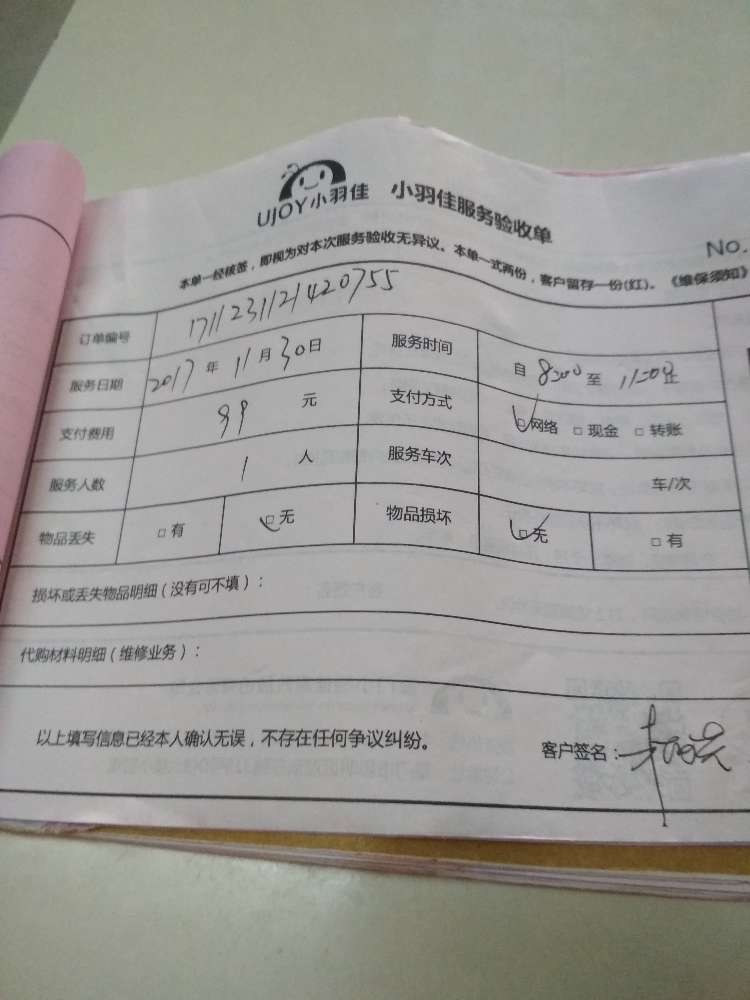 UJOY小羽佳 小羽佳服务验收单
No.
本单一经核签，即视为对本次服务验收无异议。本单一式两份，客户留存一份(红)。《维保须知》
订单编号 171123112142075​5
服务日期 2017 年 11 月 30 日 服务时间 自 8:00 至 11:00 止
支付费用 99 元 支付方式 □网络 □现金 □转账
服务人数 1 人 服务车次 车/次
物品丢失 □有 □无 物品损坏 □无 □有
损坏或丢失物品明细（没有可不填）：
代购材料明细（维修业务）：
以上填写信息已经本人确认无误，不存在任何争议纠纷。 客户签名：